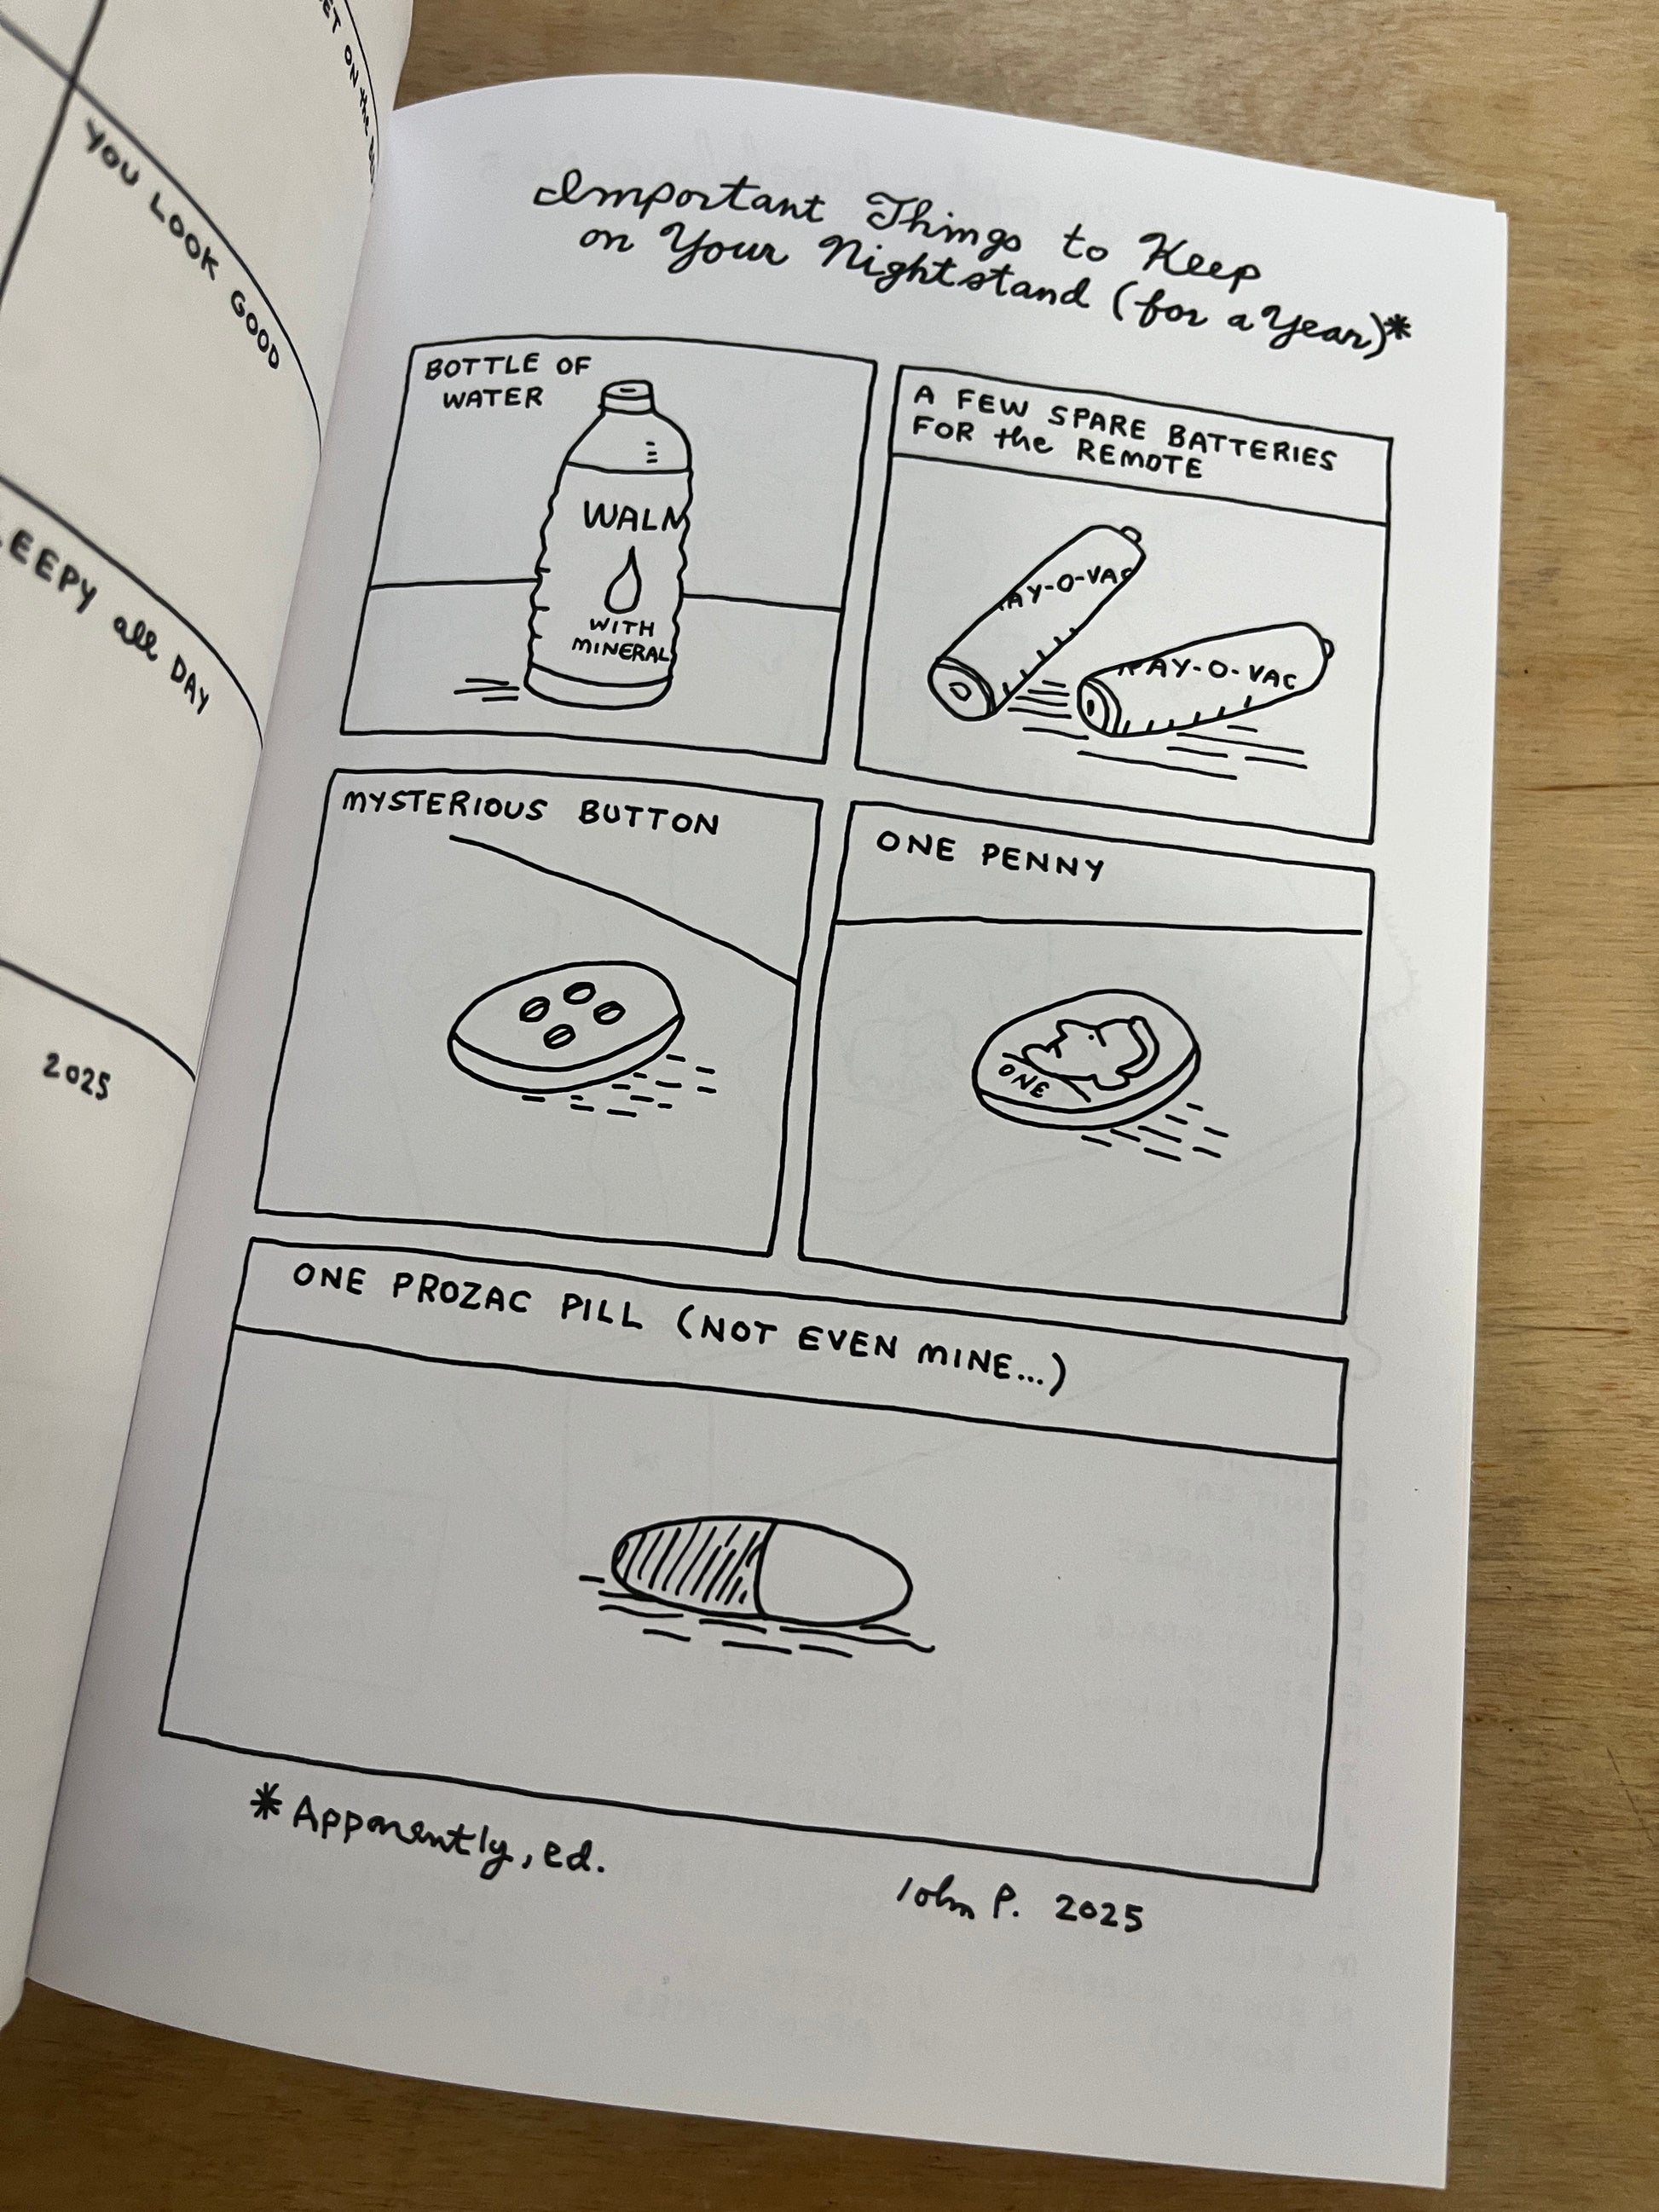 ET ON the
YOU LOOK GOOD
LEEPY all DAY
2025
Important Things to Keep
on Your Nightstand (for a Year)*
BOTTLE OF
WATER
WALM
WITH
MINERAL
A FEW SPARE BATTERIES
FOR the REMOTE
AY-O-VAC
RAY-O-VAC
MYSTERIOUS BUTTON
ONE PENNY
ONE
ONE PROZAC PILL (NOT EVEN MINE...)
* Apparently, ed.
John P. 2025